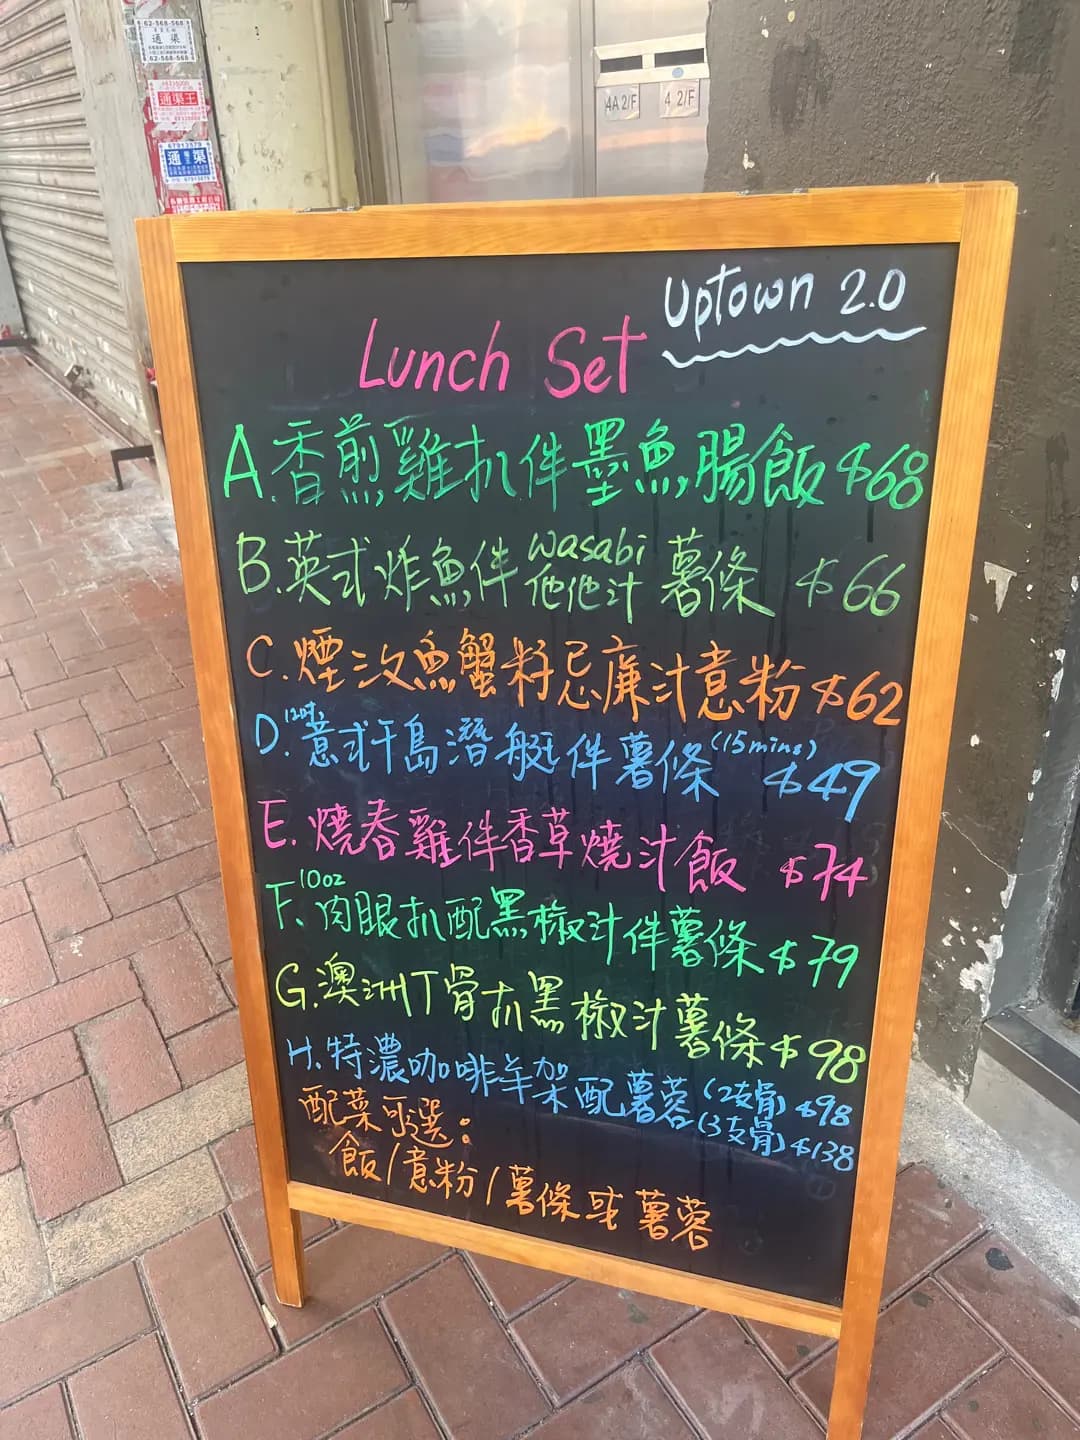 62-568-568
通渠
62-568-568
通渠王
67913579
通渠
4A 2/F
4 2/F
Uptown 2.0
Lunch Set
A.香煎雞扒伴墨魚腸飯 $68
B.英式炸魚伴wasabi他他汁薯條 $66
C.煙三文魚蟹籽忌廉汁意粉 $62
D.12吋意式千島潛艇伴薯條(15mins) $49
E.燒春雞伴香草燒汁飯 $74
F.10oz肉眼扒配黑椒汁伴薯條 $79
G.澳洲T骨扒黑椒汁薯條 $98
H.特濃咖啡羊架配薯蓉(2支骨) $98
(3支骨) $138
配菜可選：
飯/意粉/薯條或薯蓉